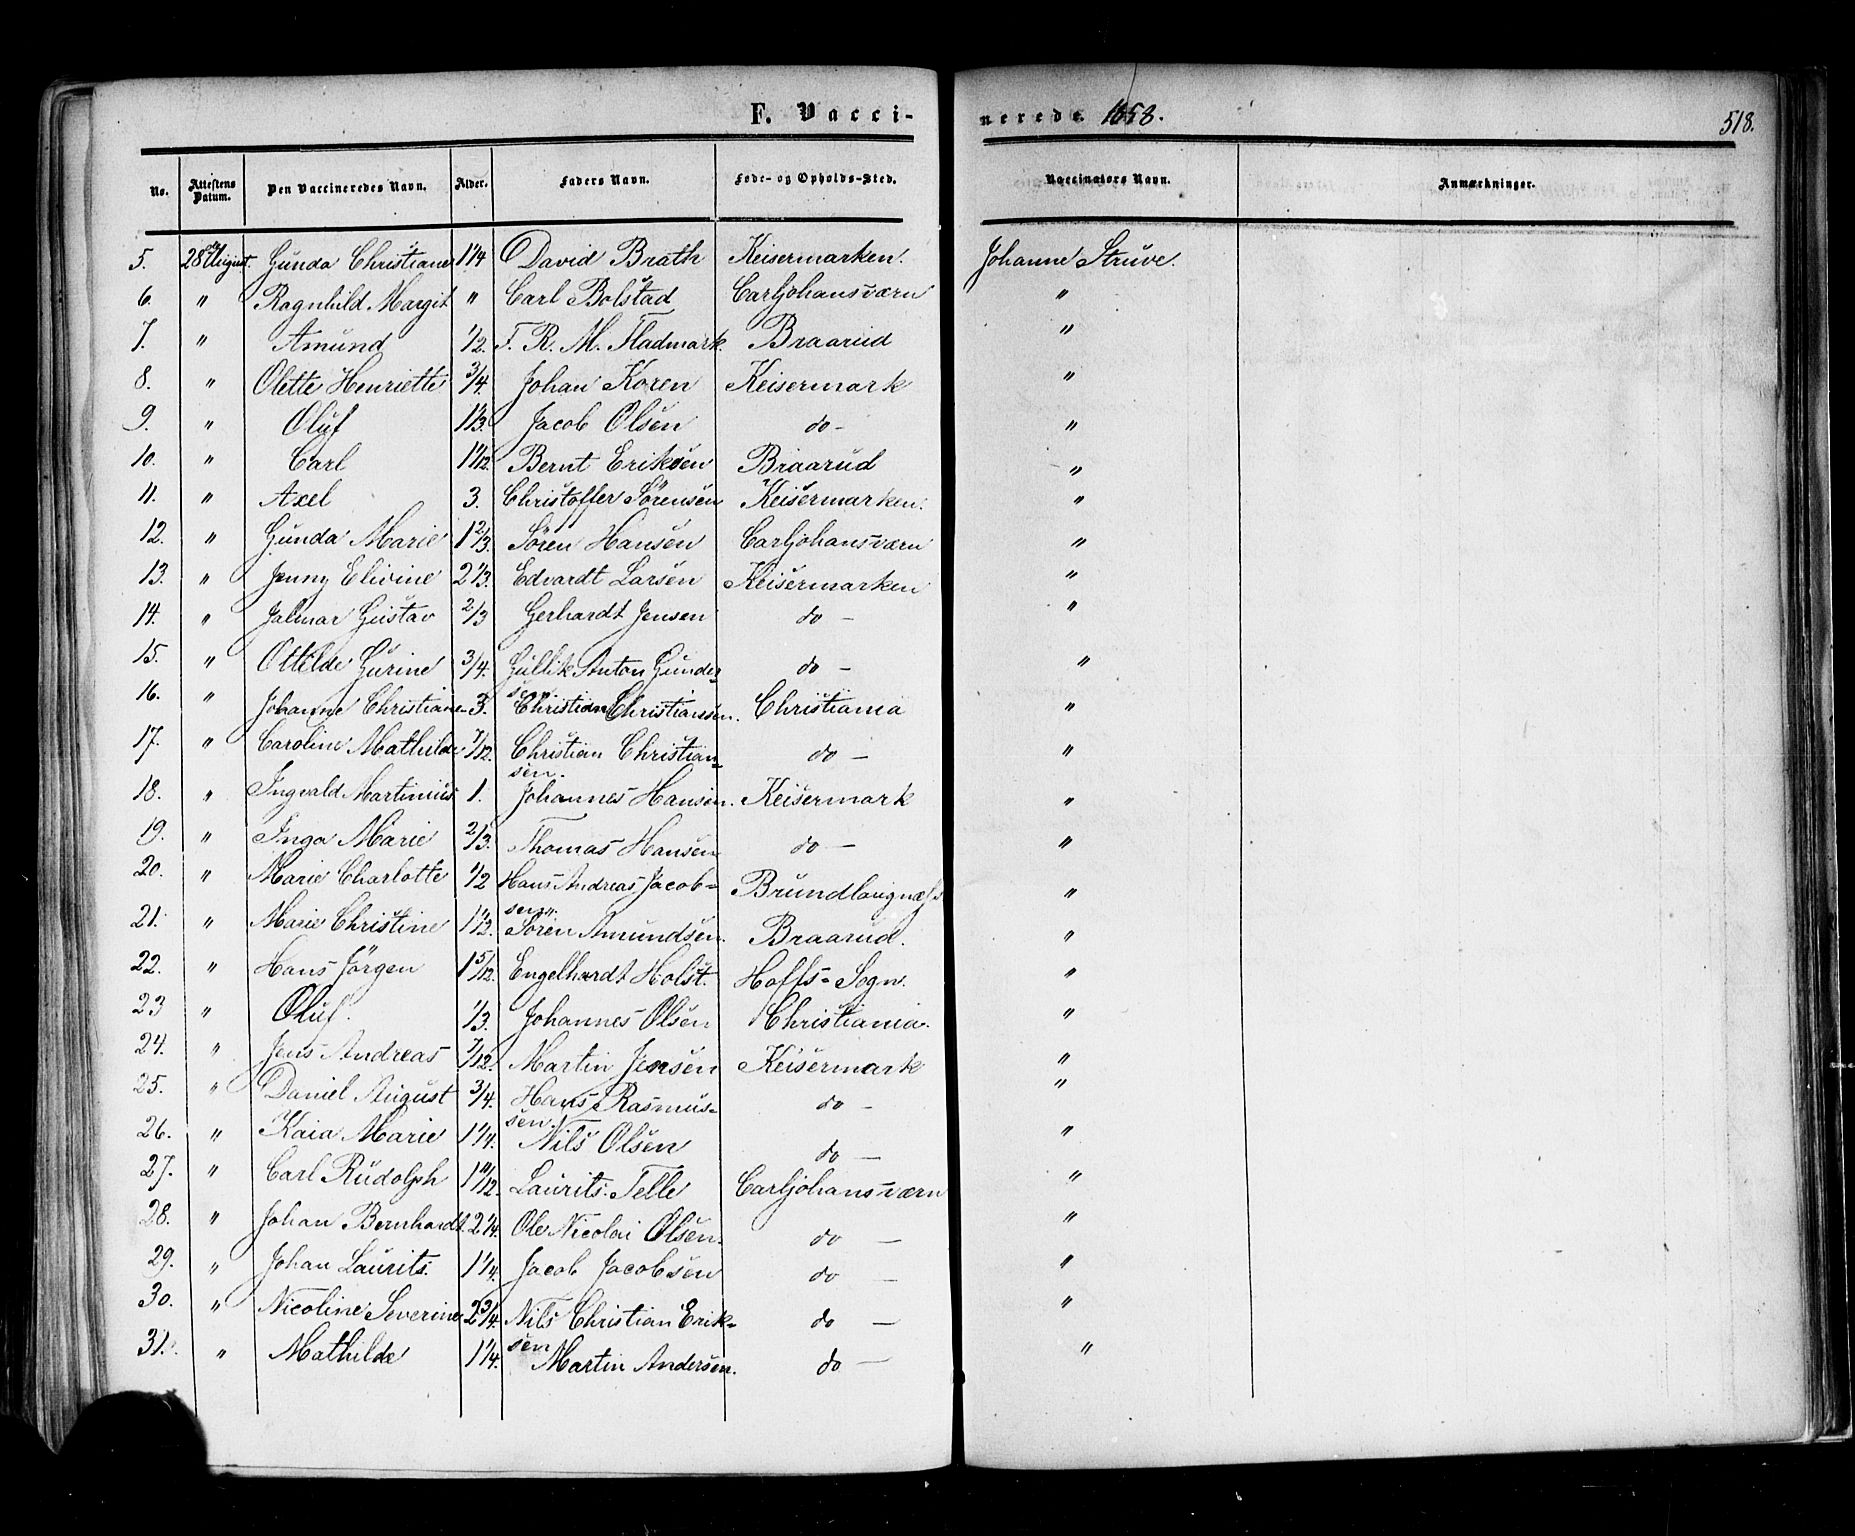 F. Vacci-
nerede 1858.
518.
No. Attestens Datum. Den Vaccineredes Navn. Alder. Faders Navn. Føde- og Opholds-Sted. Vaccinators Navn. Anmærkninger.
5. 28de August. Gunda Christiane 1 1/4 David Brath Keisermarken. Johanne Struve.
6. " Ragnhild Margit " Carl Bolstad Carljohansværn "
7. " Amund 1/2. F. R. M. Fladmark. Braarud "
8. " Olette Henriette 3/4. Johan Koren Keisermark "
9. " Oluf 1 1/3. Jacob Olsen do- "
10. " Carl 1 1/12. Bernt Eriksen Braarud "
11. " Axel 3. Christoffer Sörensen Keisermarken. "
12. " Gunda Marie 1 2/3. Sören Hansen Carljohansværn "
13. " Jenny Elivine 2 1/3. Edvardt Larsen Keisermarken "
14. " Jalmar Gustav 2/3 Gerhardt Jensen do - "
15. " Ottilde Gurine 3/4. Gullik Anton Gunder-
sen do - "
16. " Johanne Christiane 3. Christian Christiansen. Christiania "
17. " Caroline Mathilde 7/12. Christian Christian-
sen. do - "
18. " Ingvald Martinius 1. Johannes Hansen. Keisermark "
19. " Inga Marie 2/3. Thomas Hansen do - "
20. " Marie Charlotte 1/2 Hans Andreas Jacob-
sen. "
21. " Marie Christine 1 1/3. Sören Amundsen. Braarud. "
22. " Hans Jörgen 1 5/12. Engelhardt Holst. Hoffs- Sogn. "
23 " Oluf. 1/3. Johannes Olsen Christiania. "
24. " Jens Andreas 7/12. Martin Jensen Keisermark "
25. " Daniel August 3/4. Hans Rasmus-
sen. do - "
26. " Kaia Marie 1 1/4. Nils Olsen do - "
27. " Carl Rudolph 1 11/12. Laurits Telle Carljohansværn "
28. " Johan Bernhardt. 2 1/4. Ole Nicolai Olsen. do - "
29. " Johan Laurits. 1 1/4. Jacob Jacobsen do - "
30. " Nicoline Severine 2 3/4. Nils Christian Erik-
sen do - "
31. " Mathilde 1 1/4. Martin Andersen. do - "